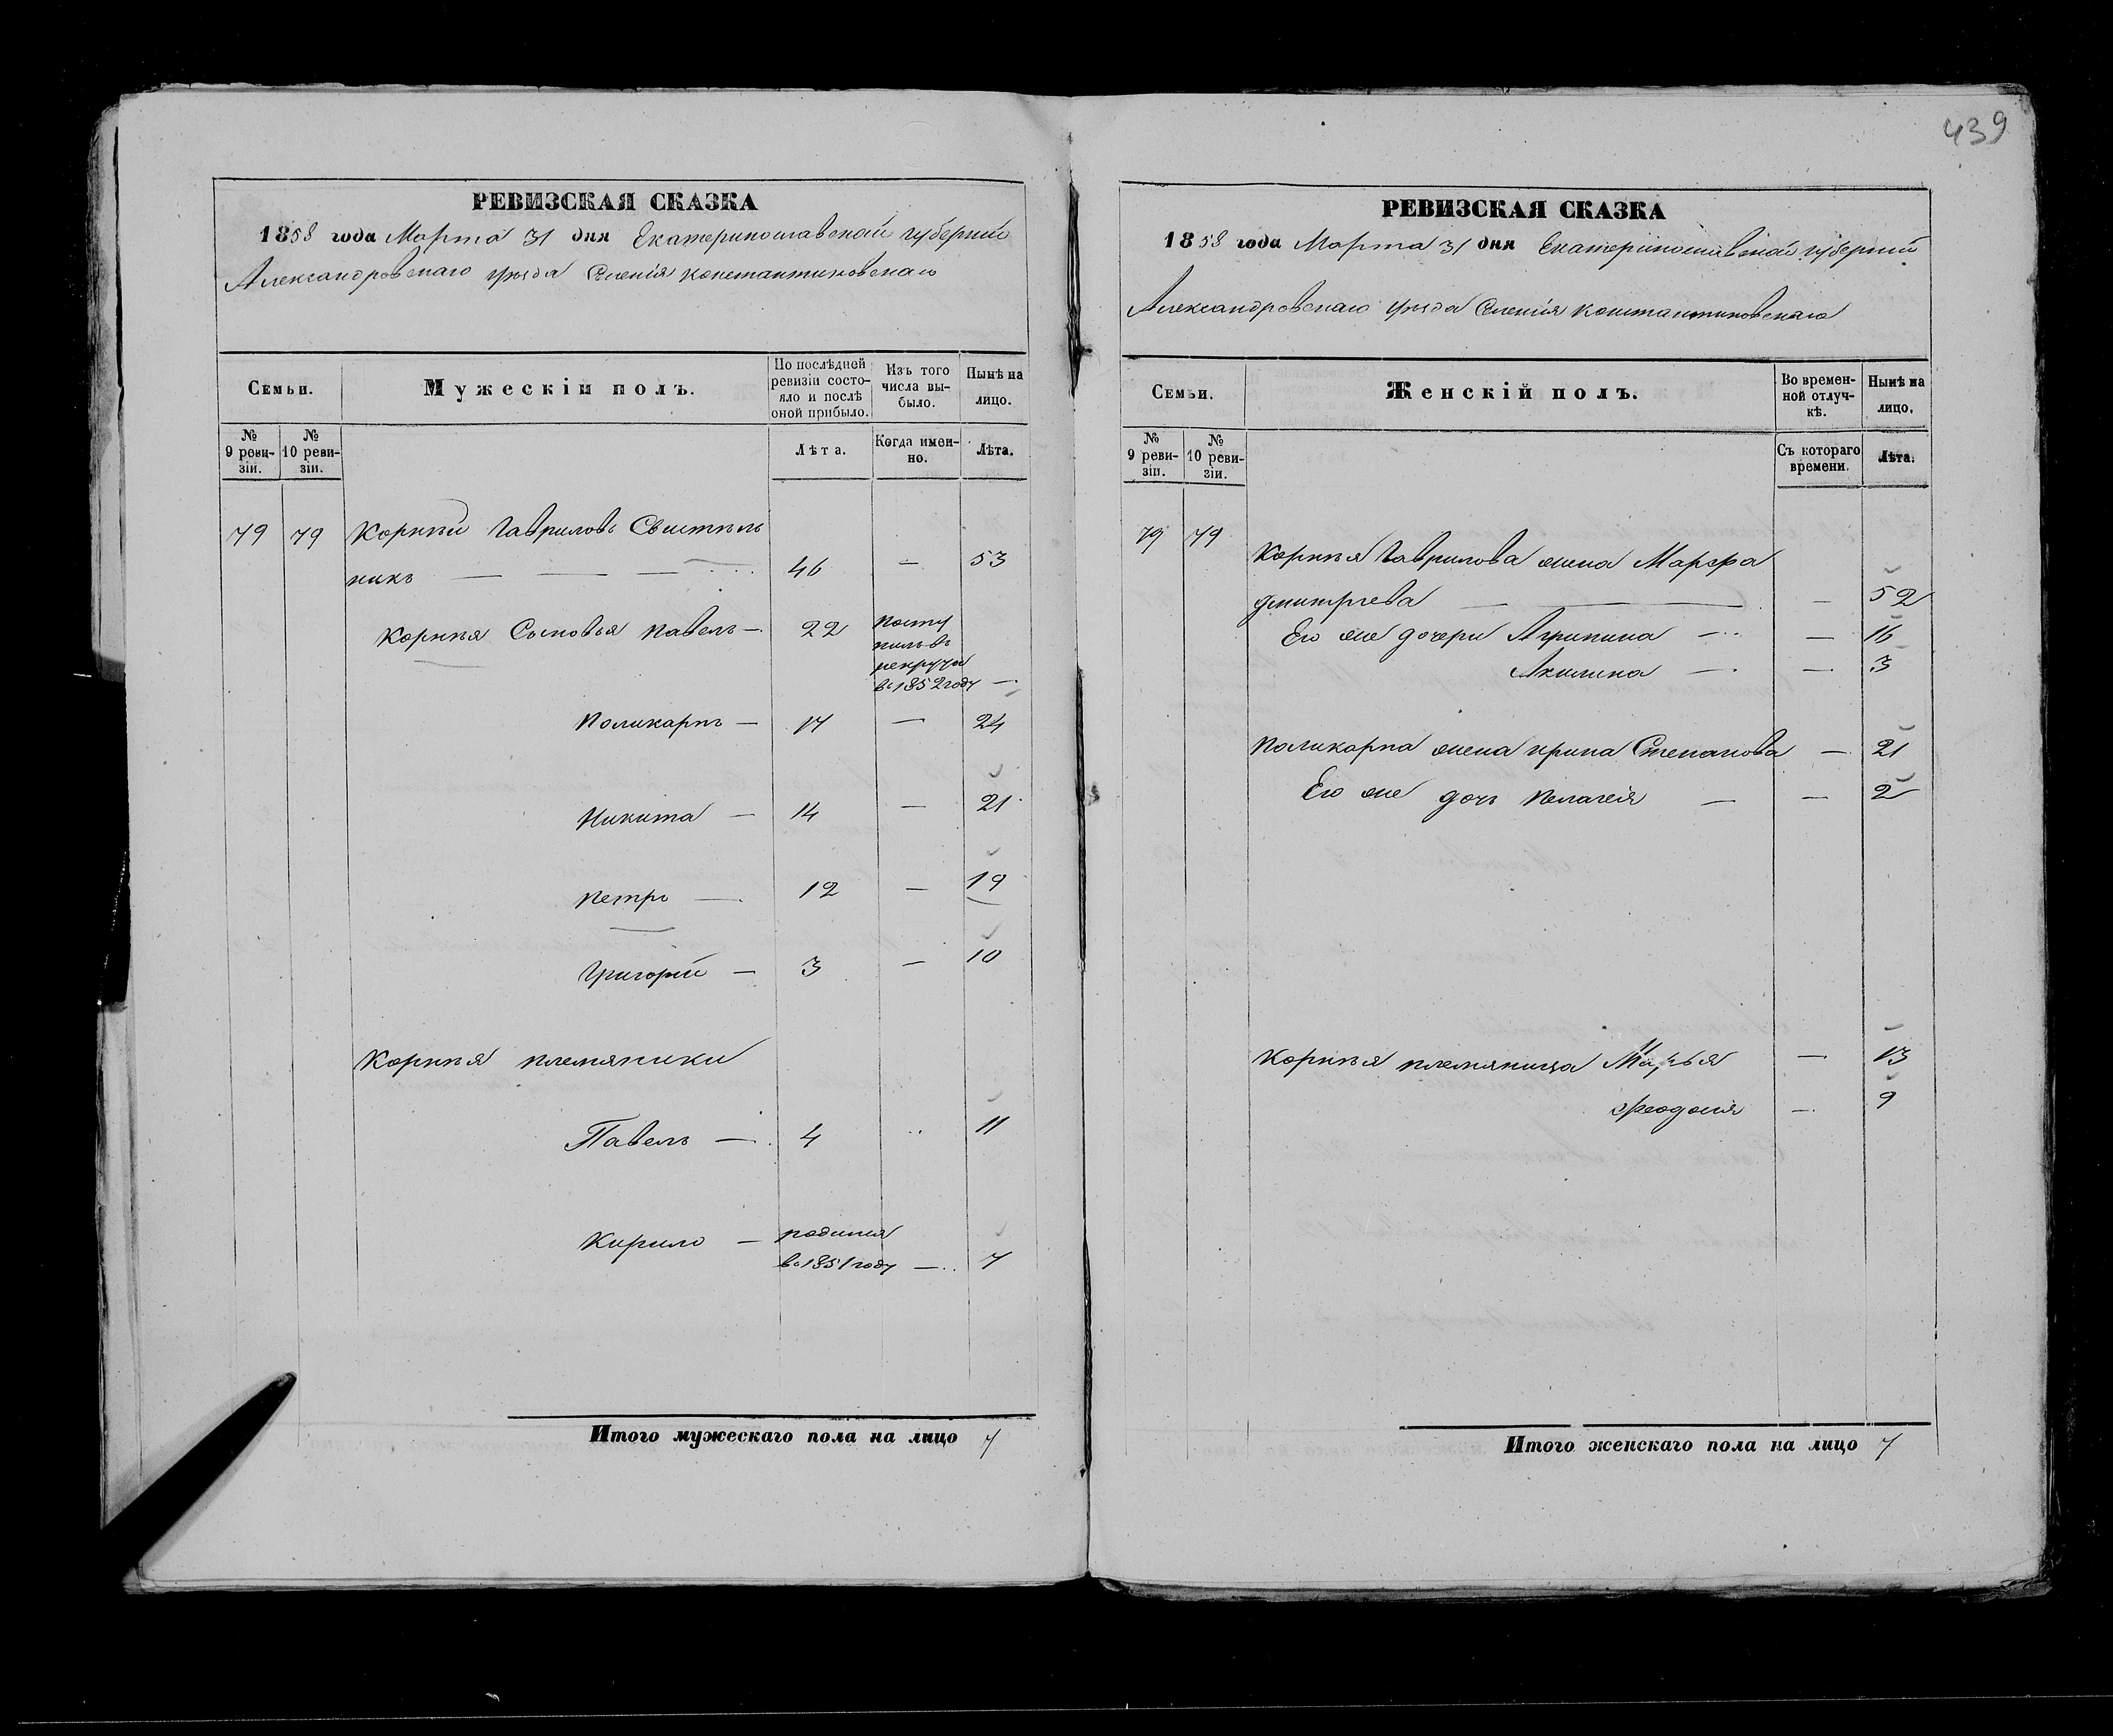 439
РЕВИЗСКАЯ СКАЗКА
1858 года Марта 31 дня Екатеринославской губернии
Александровскаго уезда Селенія Константиновскаго
Семьи.
Мужескій полъ.
По послѣдней ревизіи состо-
яло и послѣ
оной прибыло.
Изъ того
числа вы-
было.
Нынѣ на
лицо.
№
9 реви-
зіи.
№
10 реви-
зіи.
Лѣта.
Когда имен-
но.
Лѣта.
79 79 Корнѣй Гавриловъ Свистѣль
никъ — — — 46 — 53
Корнѣя Сыновья Павелъ — 22 посту
пилъ въ
рекруты
въ 1852 году —
Поликарпъ — 17 — 24
Никита — 14 — 21
Петръ — 12 — 19
Григорій — 3 — 10
Корнѣя племяники
Павелъ — 4 „ 11
Кирило — родился
въ 1851 году — 7
Итого мужескаго пола на лицо 7
РЕВИЗСКАЯ СКАЗКА
1858 года Марта 31 дня Екатеринославской губерніи
Александровскаго уезда Селенія Константиновскаго
Семьи.
Женскій полъ.
Во времен-
ной отлуч-
кѣ.
Нынѣ на
лицо.
№
9 реви-
зіи.
№
10 реви-
зіи.
Съ котораго
времени.
Лѣта.
79 79
Корнѣя Гаврилова жена Марфа
Дмитрева — — — 52
Его же дочери Агрипина — — 16
Акилина — — 3
Поликарпа жена Ирина Степанова — 21
Его же дочь Пелагея — — 2
Корнѣя племяница Марья — 13
Феодосия — 9
Итого женскаго пола на лицо 7